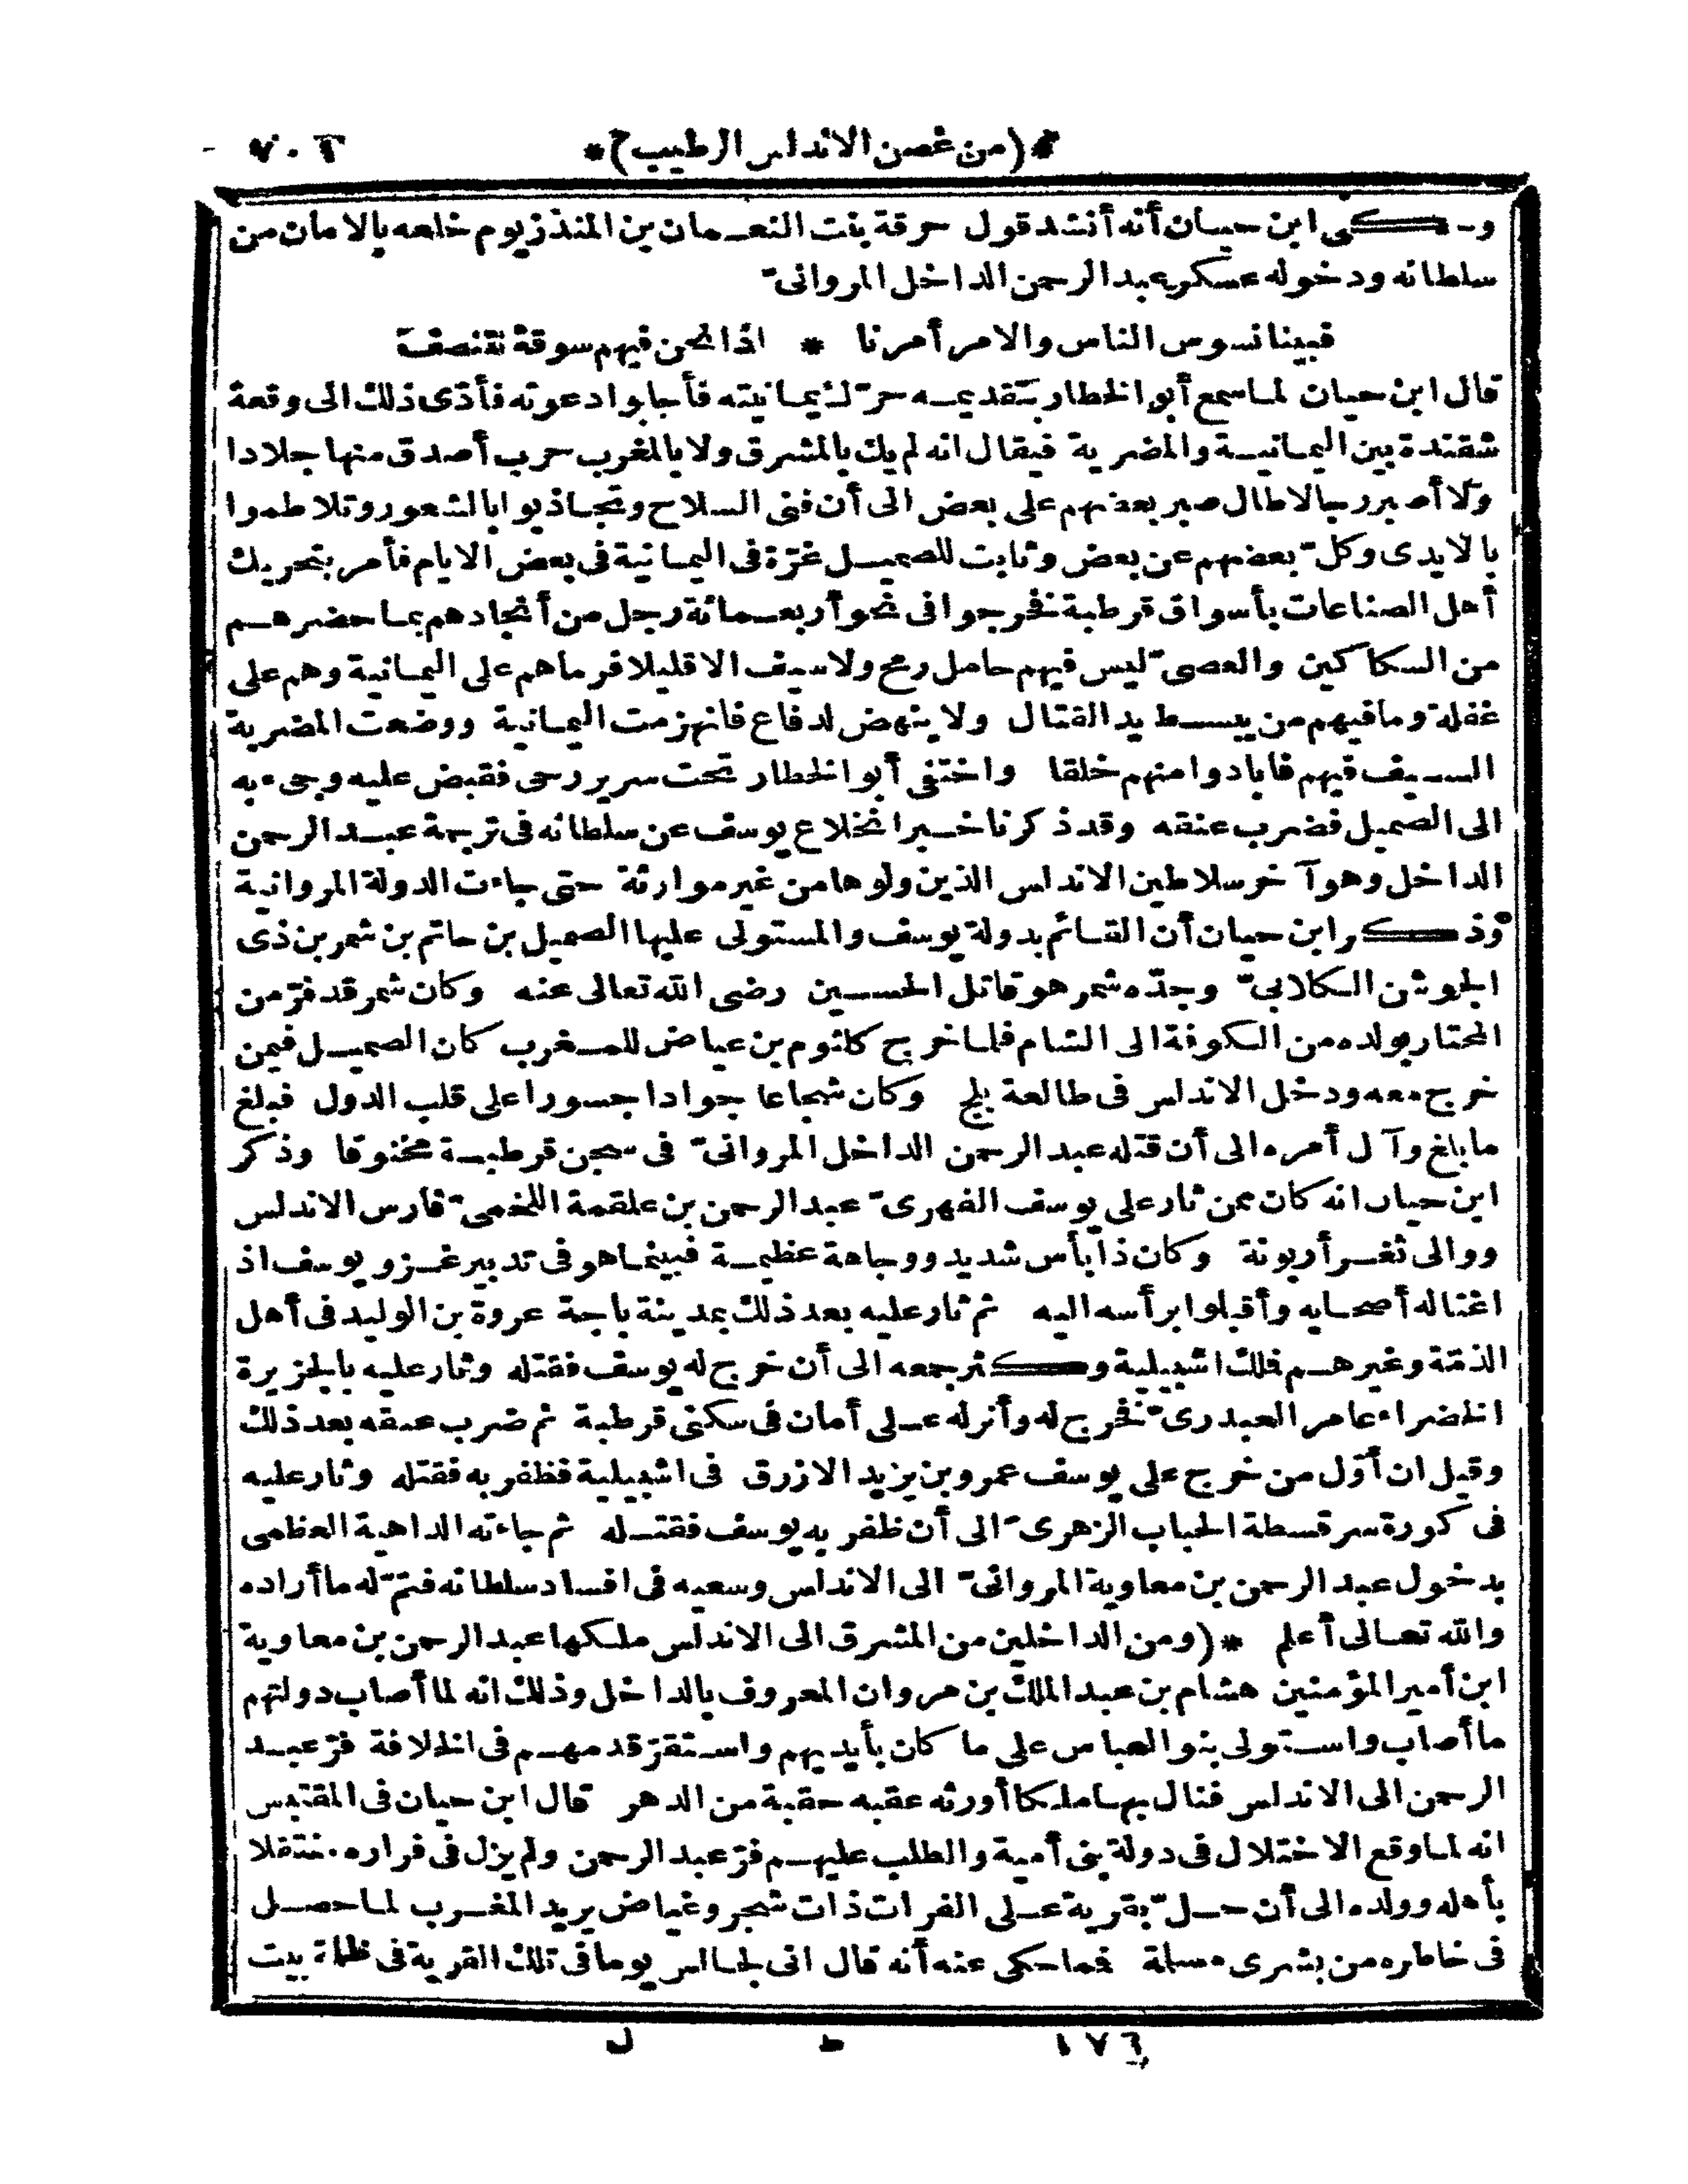 *(من غصن الاندلس الرطيب)* ٧٠١
وحكى ابن حيان أنه أنشد قول حرقة بنت النعمان بن المنذر يوم خلعه بالامان من
سلطانه ودخوله عسكر عبد الرحمن الداخل المروانىّ
فبينا نسوس الناس والامر أمرنا * اذا نحن فيهم سوقة نتنصف
قال ابن حيان لما سمع أبو الخطار بتقديمه حرّك يمانيته فأجابوا دعوته فأدّى ذلك الى وقعة
شقندة بين اليمانية والمضرية فيقال انه لم يك بالمشرق ولا بالمغرب حرب أصدق منها جلادا
ولا أصبر رجالا طال صبر بعضهم على بعض الى أن فنى السلاح وتجاذبوا بالشعور وتلاطموا
بالايدى وكلّ بعضهم عن بعض وثابت للصميل غرّة فى اليمانية فى بعض الايام فأمر بتحريك
أهل الصناعات بأسواق قرطبة فخرجوا فى نحو أربعمائة رجل من أنجادهم بما حضرهم
من السكاكين والعصىّ ليس فيهم حامل رمح ولا سيف الا قليلا فرماهم على اليمانية وهم على
غفلة وما فيهم من يبسط يد القتال ولا ينهض لدفاع فانهزمت اليمانية ووضعت المضرية
السيف فيهم فابادوا منهم خلقا واختفى أبو الخطار تحت سرير رحى فقبض عليه وجىء به
الى الصميل فضرب عنقه وقد ذكرنا خبر انخلاع يوسف عن سلطانه فى ترجمة عبد الرحمن
الداخل وهو آخر سلاطين الاندلس الذين ولوها من غير موارثة حتى جاءت الدولة المروانية
وذكر ابن حيان أن القائم بدولة يوسف والمستولى عليها الصميل بن حاتم بن شمر بن ذى
الجوشن الكلابىّ وجدّه شمر هو قاتل الحسين رضى الله تعالى عنه وكان شمر قد فرّ من
المختار بولده من الكوفة الى الشام فلما خرج كلثوم بن عياض للمغرب كان الصميل فيمن
خرج معه ودخل الاندلس فى طالعة بلج وكان شجاعا جوادا جسورا على قلب الدول فبلغ
ما بلغ وآل أمره الى أن قتله عبد الرحمن الداخل المروانىّ فى سجن قرطبة مخنوقا وذكر
ابن حيان انه كان ممن ثار على يوسف الفهرىّ عبد الرحمن بن علقمة اللخمىّ فارس الاندلس
ووالى ثغر أربونة وكان ذا بأس شديد ووجاهة عظيمة فبينما هو فى تدبير غزو يوسف اذ
اغتاله أصحابه وأقبلوا برأسه اليه ثم ثار عليه بعد ذلك بمدينة باجة عروة بن الوليد فى أهل
الذمّة وغيرهم فملك اشبيلية وكثر جمعه الى أن خرج له يوسف فقتله وثار عليه بالجزيرة
الخضراء عامر العبدرىّ فخرج له وأنزله على أمان فى سكنى قرطبة ثم ضرب عنقه بعد ذلك
وقيل ان أوّل من خرج على يوسف عمرو بن يزيد الازرق فى اشبيلية فظفر به فقتله وثار عليه
فى كورة سرقسطة الحباب الزهرىّ الى أن ظفر به يوسف فقتله ثم جاءته الداهية العظمى
بدخول عبد الرحمن بن معاوية المروانىّ الى الاندلس وسعيه فى افساد سلطانه فتمّ له ما أراده
والله تعالى أعلم *(ومن الداخلين من المشرق الى الاندلس ملكها عبد الرحمن بن معاوية
ابن أمير المؤمنين هشام بن عبد الملك بن مروان المعروف بالداخل وذلك انه لما أصاب دولتهم
ما أصاب واستولى بنو العباس على ما كان بأيديهم واستقرّ قدمهم فى الخلافة فرّ عبد
الرحمن الى الاندلس فنال بها ملكا أورثه عقبه حقبة من الدهر قال ابن حيان فى المقتبس
انه لما وقع الاختلال فى دولة بنى أمية والطلب عليهم فرّ عبد الرحمن ولم يزل فى فراره منتقلا
بأهله وولده الى أن حلّ بقرية على الفرات ذات شجر وغياض يريد المغرب لما حصل
فى خاطره من بشرى مسلمة فما حكى عنه أنه قال انى لجالس يوما فى تلك القرية فى ظلمة بيت
١٧٦ ط ل